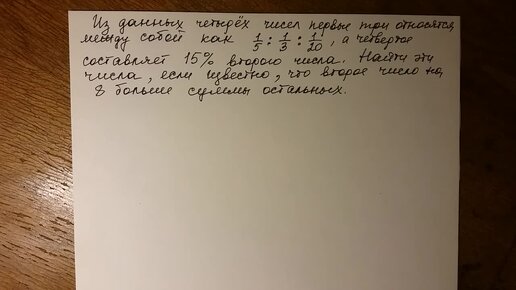 Из данных четырёх чисел первые три относятся
между собой как 1/5 : 1/3 : 1/20, а четвёртое
составляет 15% второго числа. Найти эти
числа, если известно, что второе число на
8 больше суммы остальных.